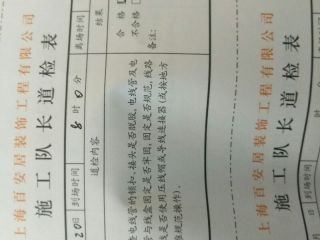 上海百安居装饰工程有限公司
施工队长道检表
20日 到场时间 8 时 0 分 离场时间
道检内容
结果
电线管的锁扣、接头是否脱胶，电线管及电
管与线盒固定是否牢固，固定是否规范，线路
是否使用压线帽或导线连接器(或按地方
准规范操作)。
合格
不合格
备注:
上海百安居装饰工程有限公司
施工队长道检表
日 到场时间 时 分 离场时间